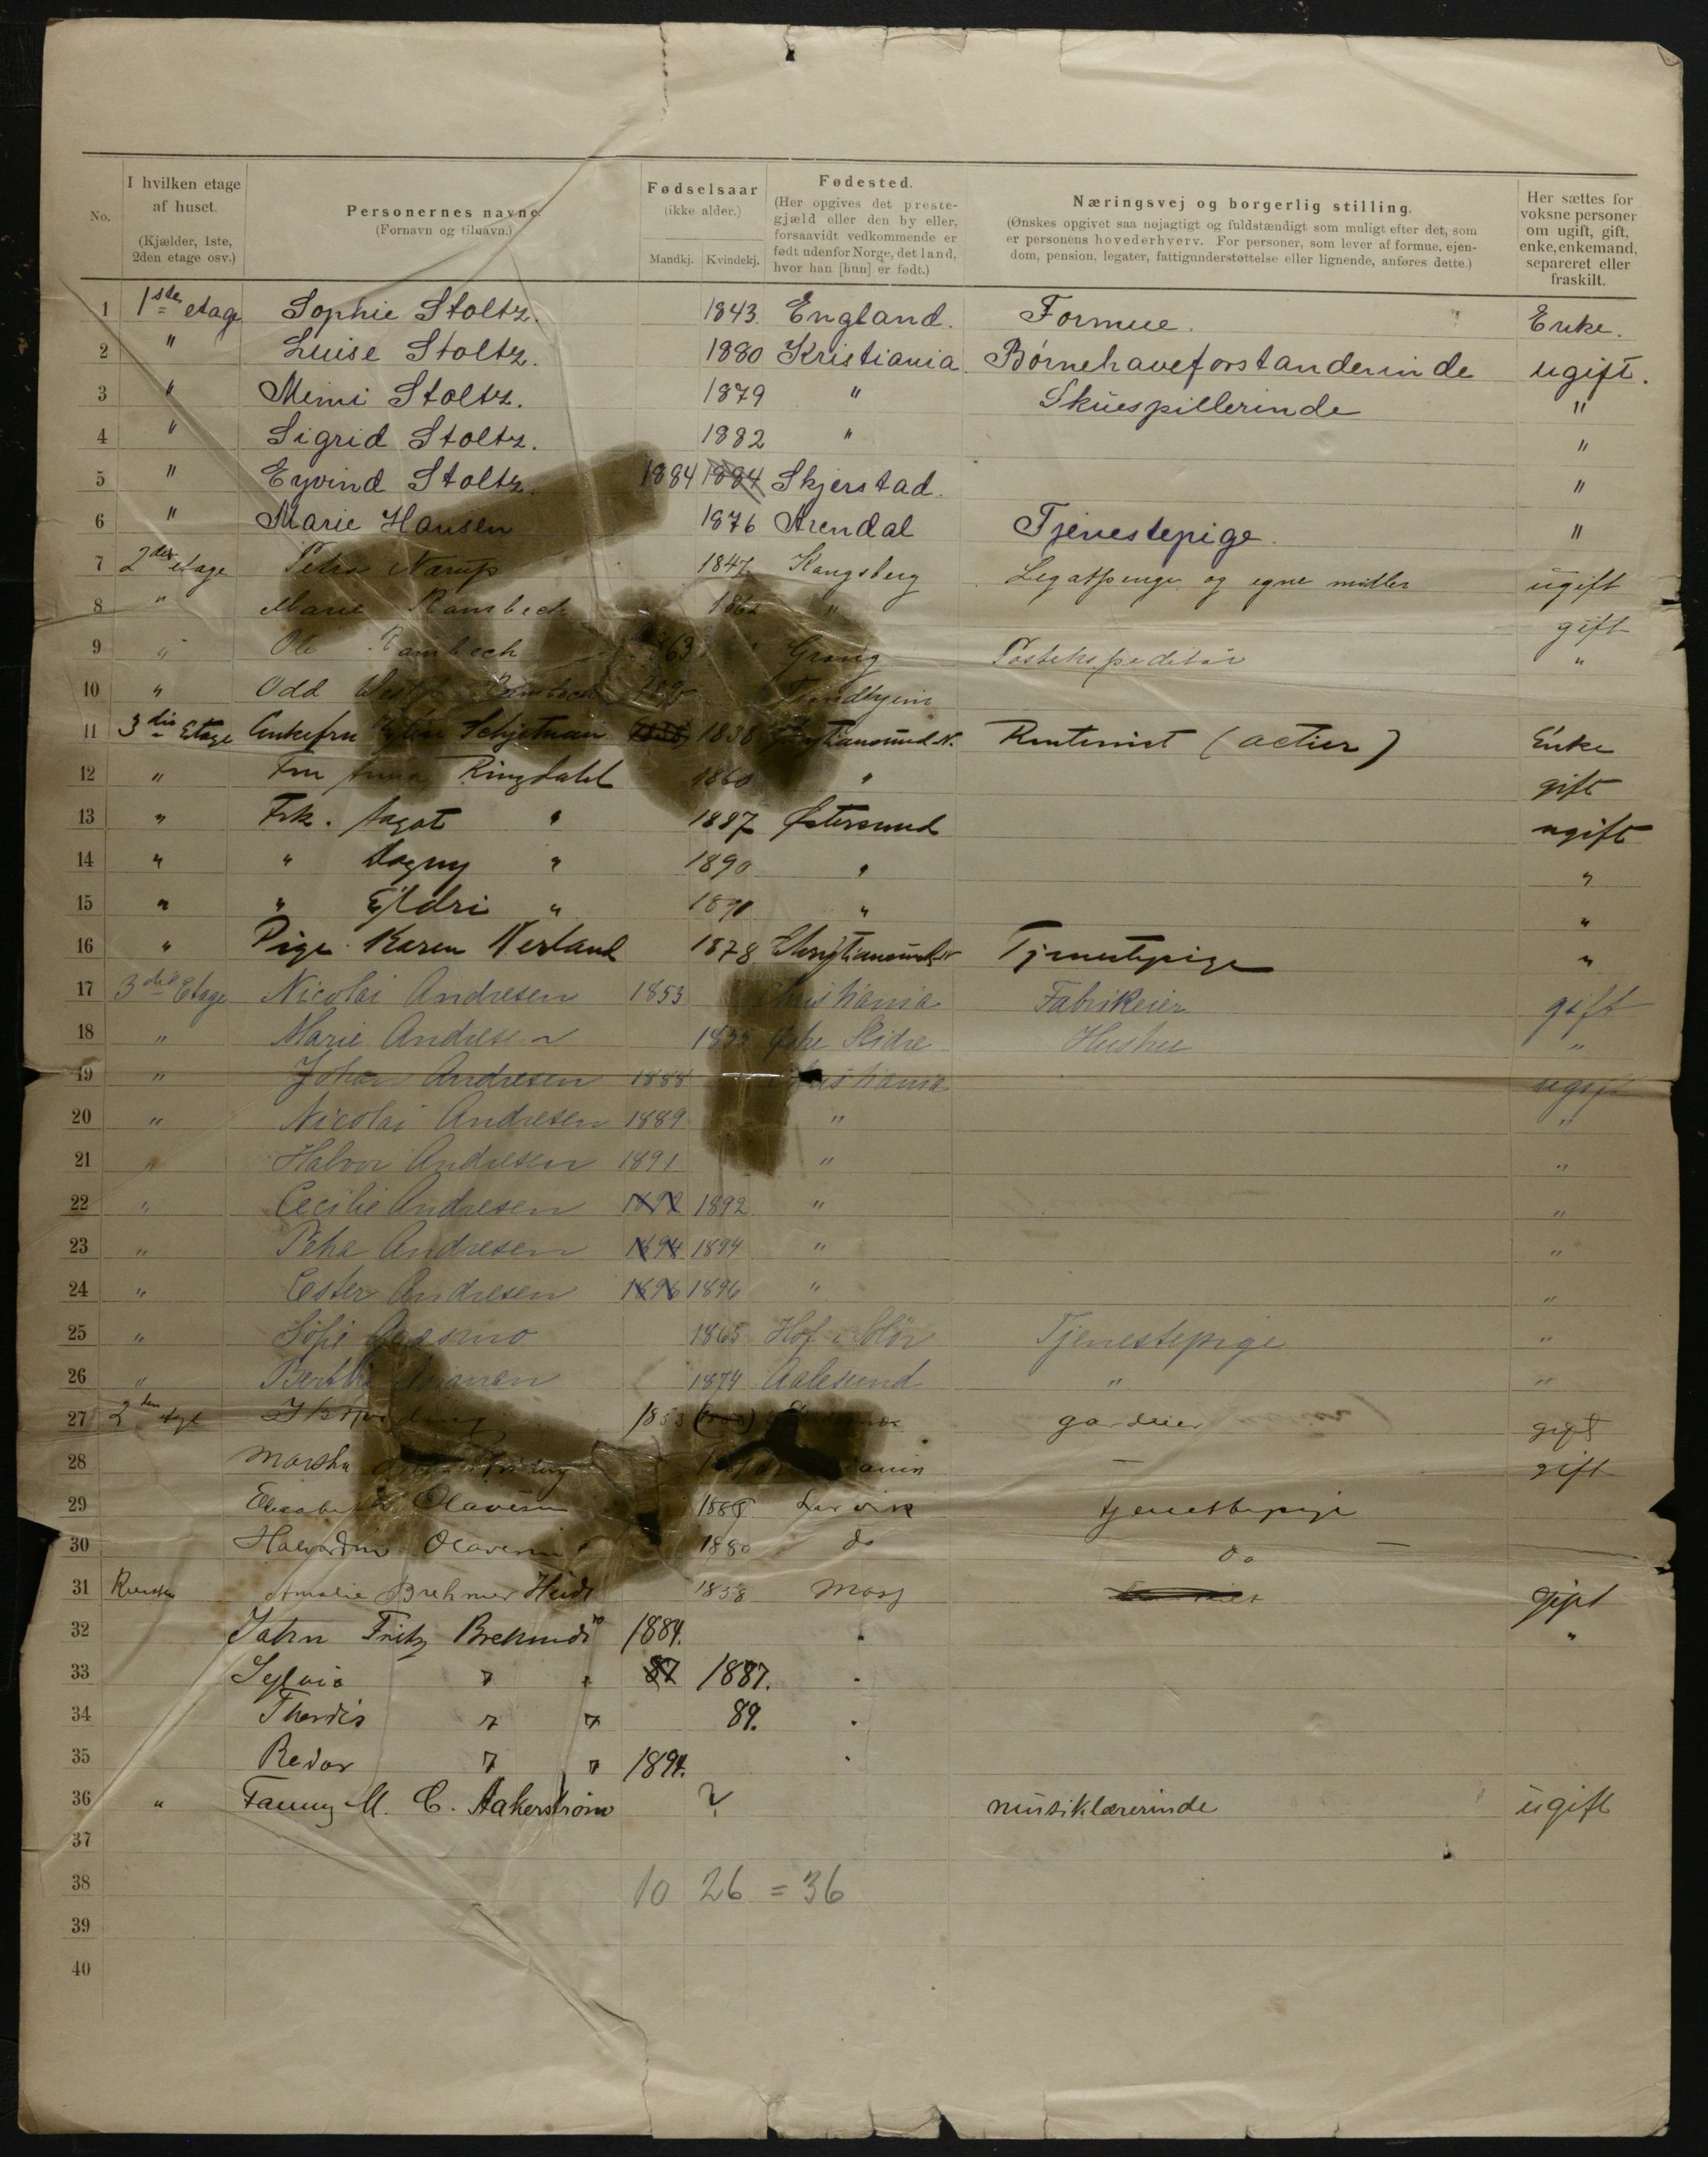 No.
I hvilken etage af huset.
(Kjælder, 1ste, 2den etage osv.)
Personernes navne.
(Fornavn og tilnavn.)
Fødselsaar
(ikke alder.)
Mandkj. Kvindekj.
Fødested.
(Her opgives det prestegjæld eller den by eller, forsaavidt vedkommende er født udenfor Norge, det land, hvor han [hun] er født.)
Næringsvej og borgerlig stilling.
(Ønskes opgivet saa nøjagtigt og fuldstændigt som muligt efter det, som er personens hovederhverv. For personer, som lever af formue, ejendom, pension, legater, fattigunderstøttelse eller lignende, anføres dette.)
Her sættes for voksne personer om ugift, gift, enke, enkemand, separeret eller fraskilt.
1 1ste etage Sophie Stoltz. 1843. England. Formue. Enke.
2 " Luise Stoltz. 1880 Kristiania Børnehaveforstanderinde ugift.
3 " Mimi Stoltz. 1879 " Skuespillerinde "
4 " Sigrid Stoltz. 1882 " "
5 " Eyvind Stoltz. 1884 1884 Skjerstad. "
6 " Marie Hansen 1876 Arendal Tjenestepige. "
7 2den etage Petra Nærup 1847 Kongsberg Legatpenge og egne midler ugift
8 " Marie Rambech 186 " gift
9 " Ole Rambech 63 Grong Postekspeditør "
10 " Odd Rambech Trondhjem
11 3die Etage Enkefru Schjetnan 1838 1838 Christiansund N. Rentenist (actier) Enke
12 " Fru Anna Ringdahl 1860 " gift
13 " Frk. Aagot " 1887 Østersund ugift
14 " " Dagny " 1890 " "
15 " " Eldri " 1891 " "
16 " Pige Karen Nerland 1878 Christiansund N Tjenestepige "
17 3die Etage Nicolai Andresen 1853 Christiania Fabrikeier gift
18 " Marie Andresen 1855 Østre Slidre Hustru "
19 " Johan Andresen 1888 Christiania ugift
20 " Nicolai Andresen 1889 " "
21 " Halvor Andresen 1891 " "
22 " Cecilie Andresen 1892 1892 " "
23 " Petra Andresen 1894 1894 " "
24 " Ester Andresen 1896 1896 " "
25 " Sofie 1865 Hof i Solør Tjenestepige "
26 " Bertha 1874 Aalesund " "
27 2den etage 1853 gardeier gift
28 Martha gift
29 Elisabeth Olavesen Larvik tjenestepige
30 Halvardine Olavesen 1880 do do
31 Amalie Brehmer Heidt 1858 Moss gift
32 John Fritz 1884. " "
33 Sylvia " " 87 1887. "
34 Thordis " " 89. "
35 Reidar " " 1894. "
36 " Fanny M. C. Aakerstrøm ? musiklærerinde ugift
37
38 10 26 = 36
39
40